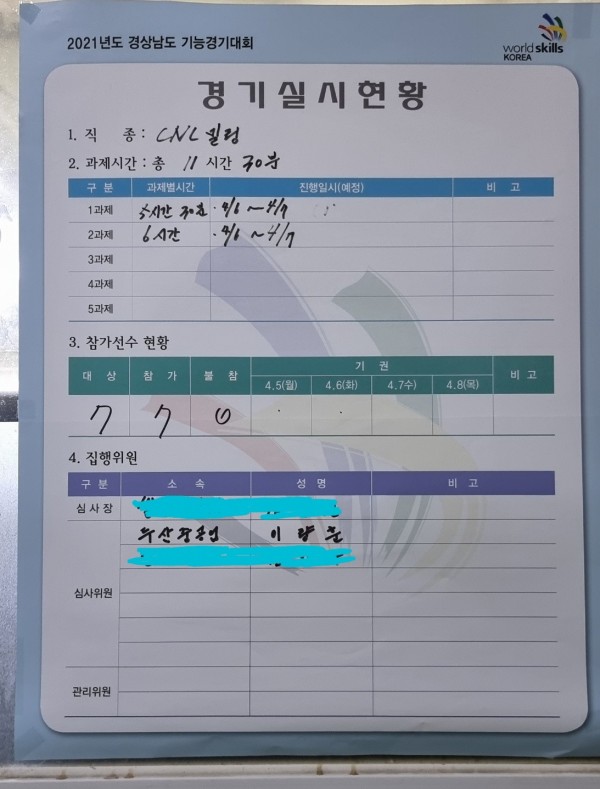 2021년도 경상남도 기능경기대회
worldskills
KOREA
경기실시현황
1. 직 종 : CNC 밀링
2. 과제시간 : 총 11 시간 30분
구 분 과제별시간 진행일시(예정) 비 고
1과제 5시간 30분 · 4/6 ~ 4/7
2과제 6시간 · 4/6 ~ 4/7
3과제
4과제
5과제
3. 참가선수 현황
대 상 참 가 불 참 기 권 비 고
4.5(월) 4.6(화) 4.7(수) 4.8(목)
7 7 0
4. 집행위원
구 분 소 속 성 명 비 고
심 사 장
두산공
이
심사위원
관리위원